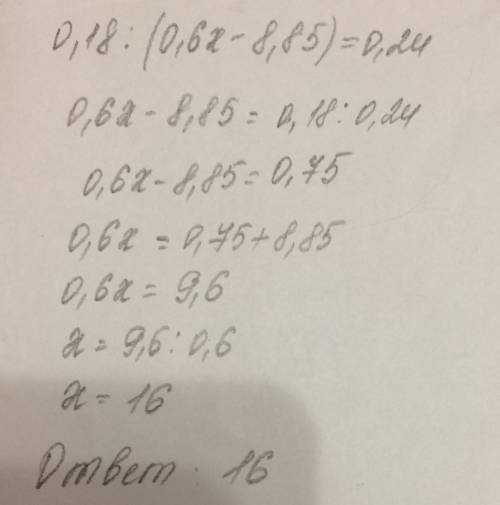 0,18 : (0,6x - 8,85) = 0,24
0,6x - 8,85 = 0,18 : 0,24
0,6x - 8,85 = 0,75
0,6x = 0,75 + 8,85
0,6x = 9,6
x = 9,6 : 0,6
x = 16
Ответ : 16